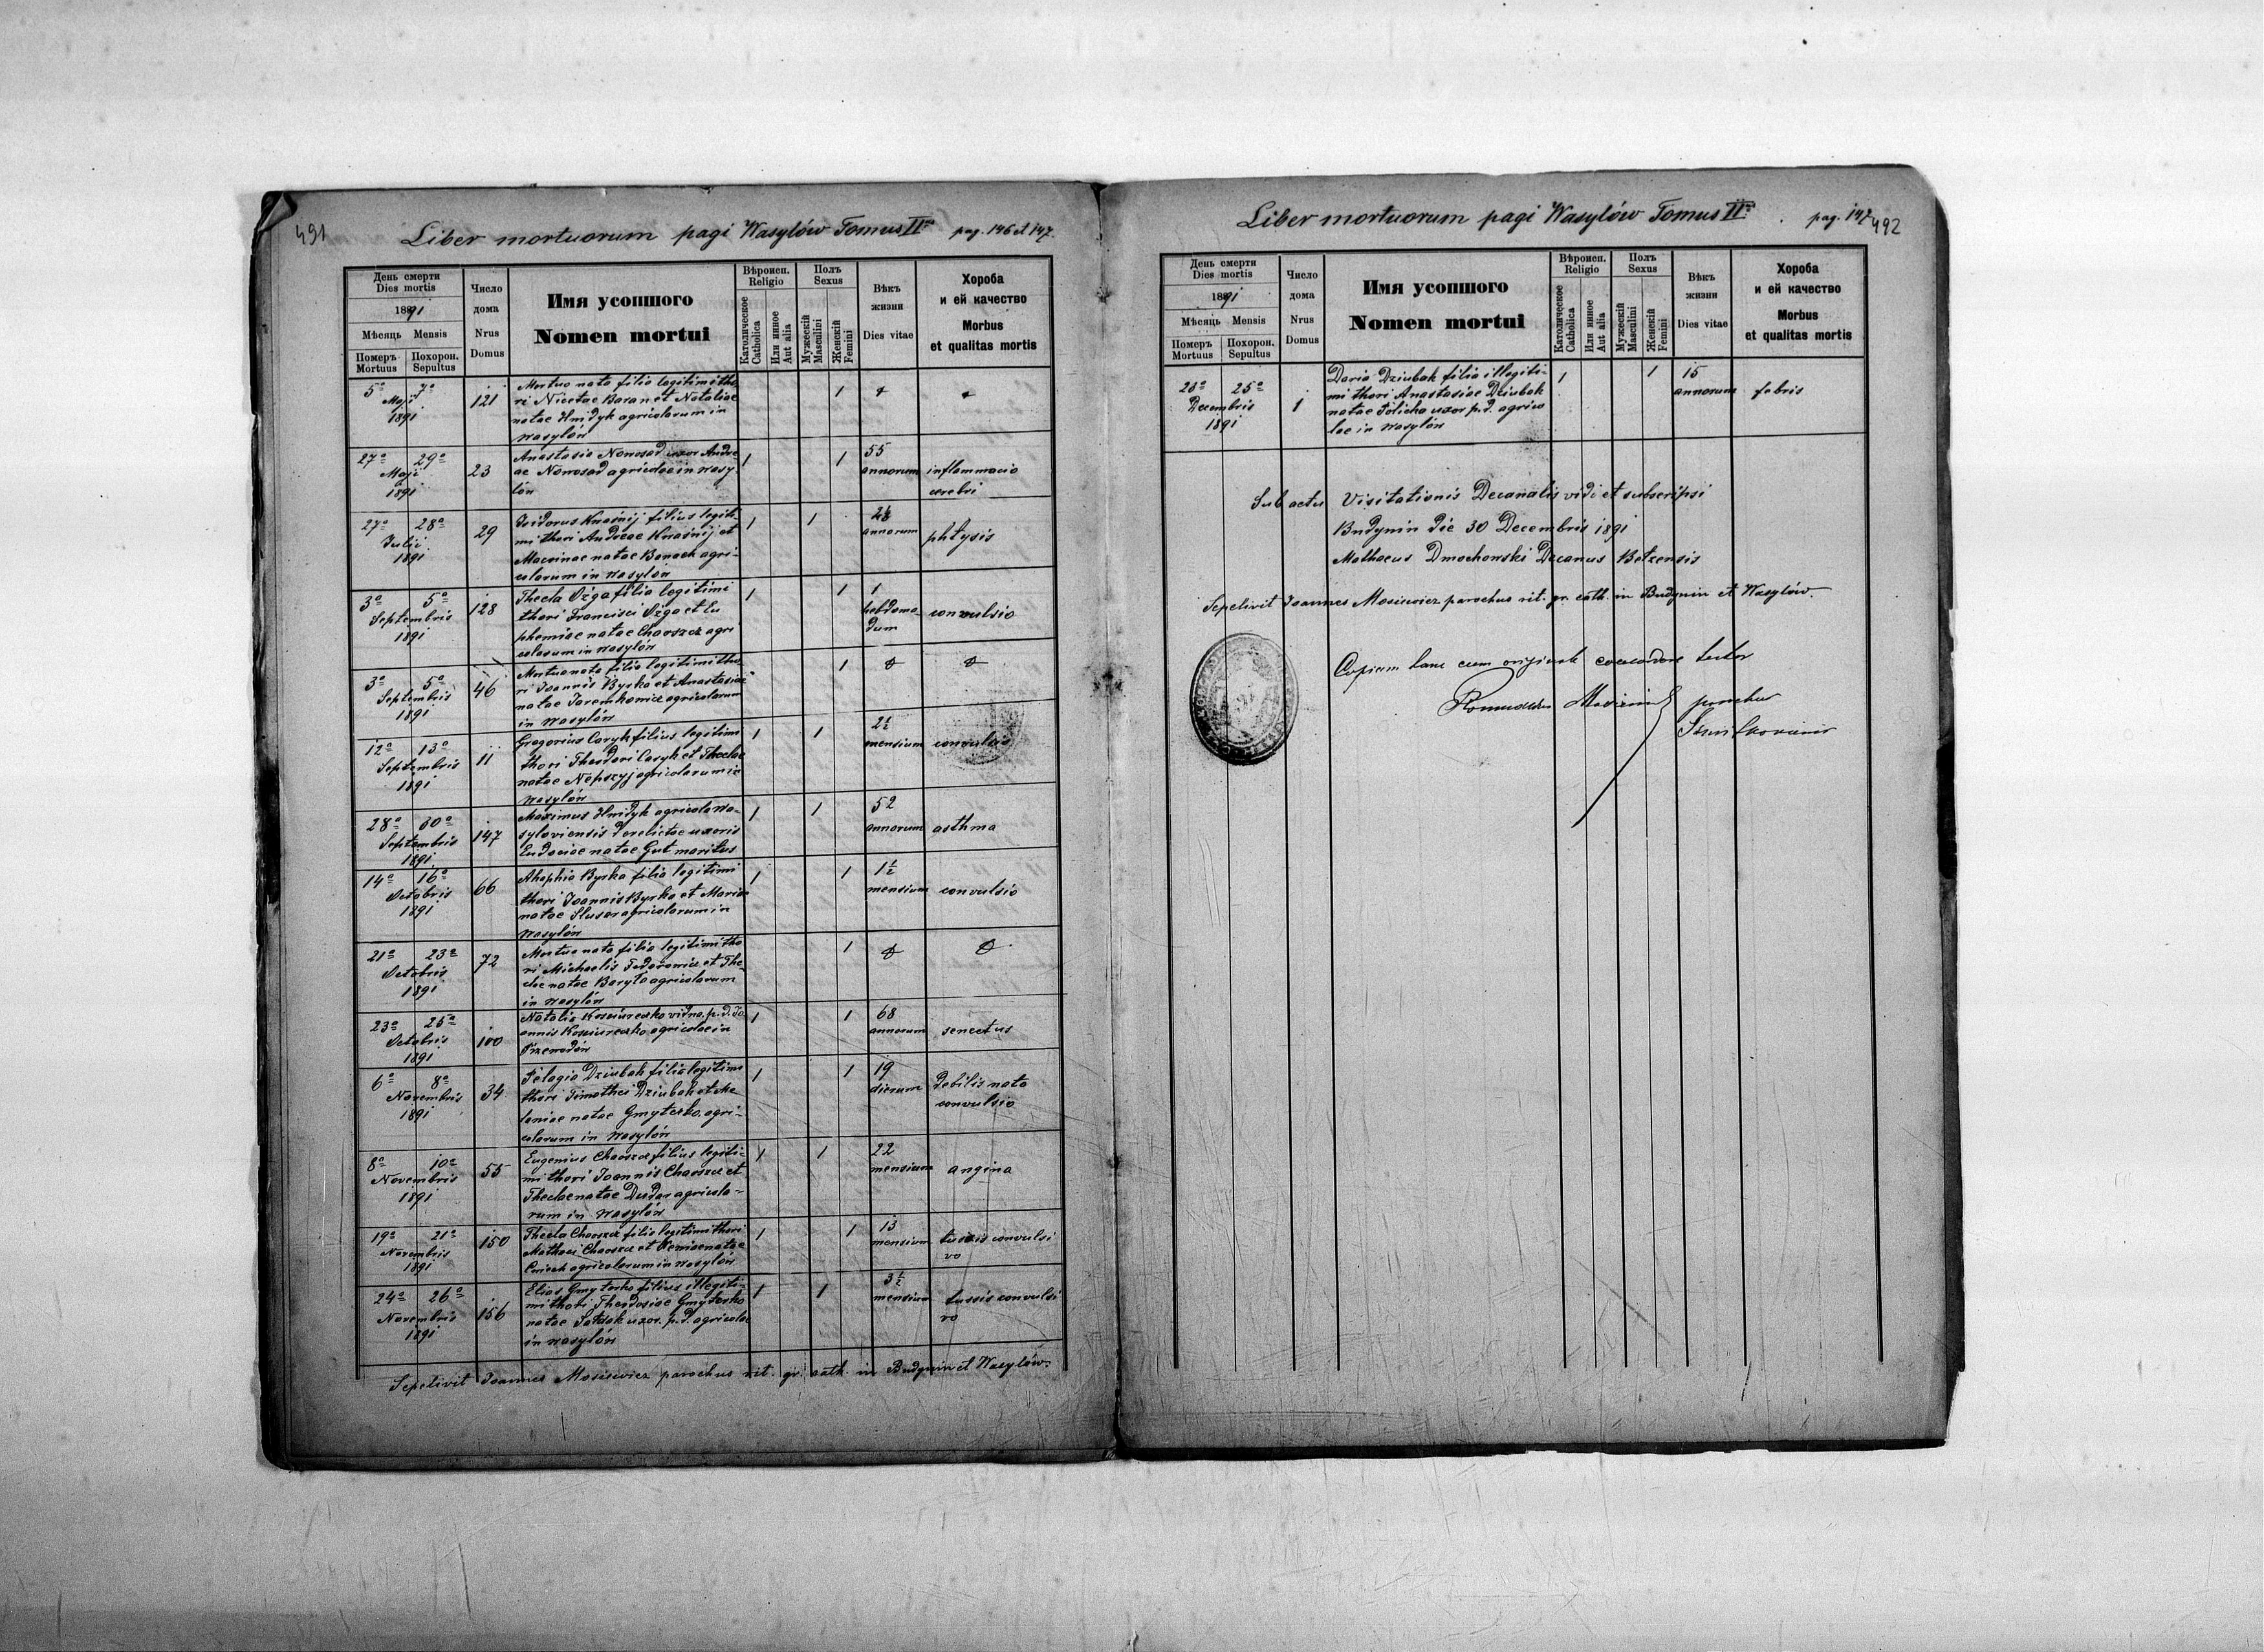 491
Liber mortuorum pagi Wasylów Tomus II pag. 146 et 147.
День смерти
Dies mortis
1891
Мѣсяць Mensis
Померъ Похорон.
Mortuus Sepultus
Число
дома
Nrus
Domus
Имя усопшого
Nomen mortui
Вѣроисп.
Religio
Католическое
Catholica
Или иное
Aut alia
Полъ
Sexus
Мужескій
Masculini
Женскій
Femini
Вѣкъ
жизни
Dies vitae
Хороба
и ей качество
Morbus
et qualitas mortis
5a 7a
Maji
1891
121
Mortuo nata filia legitimi tho
ri Nicetae Baran et Nataliae
natae Hnidyk agricolarum in
Wasylów
1
27a 29a
Maji
1891
23
Anastasia Nowosad uxor Andre
ae Nowosad agricolae in Wasy
lów
1 1
55
annorum
inflammacio
cerebri
27a 28a
Julii
1891
29
Isidorus Kraśnij filius legiti
mi thori Andreae Kraśnij et
Macrinae natae Banach agri-
colarum in Wasylów
1 1
annorum
phtysis
3a 5a
Septembris
1891
128
Thecla Ożga filia legitimi
thori Francisci Ożga et Eu
phemiae natae Chaoszcz agri
colarum in Wasylów
1 1
1
hebdoma-
dum
convulsio
3a 5a
Septembris
1891
46
Mortuo nata filia legitimi tho
ri Joannis Byrka et Anastasiae
natae Jaremkowicz agricolarum
in Wasylów
1
12a 13a
Septembris
1891
11
Gregorius Caryk filius legitimi
thori Theodori Caryk et Theclae
natae Nepszyj agricolarum in
Wasylów
1 1
2½
mensium
convulsio
28a 30a
Septembris
1891
147
Maximus Hnidyk agricola Wa-
syloviensis derelictae uxoris
Eudociae natae Gut maritus
1 1
52
annorum
asthma
14a 16a
Octobris
1891
66
Ahaphia Byrka filia legitimi
thori Joannis Byrka et Mariae
natae Slusar agricolarum in
Wasylów
1 1
1½
mensium
convulsio
21a 23a
Octobris
1891
72
Mortuo nata filia legitimi tho
ri Michaelis Fedorowicz et The-
clae natae Baryła agricolarum
in Wasylów
1
23a 25a
Octobris
1891
100
Natalia Kosciureczko vidua p. d. Jo
annis Kosciureczko agricolae in
Przewodów
1 1
68
annorum
senectus
6a 8a
Novembris
1891
34
Pelagia Dziubak filia legitimi
thori Timothei Dziubak et Me
laniae natae Gmyterko agri-
colarum in Wasylów
1 1
19
dierum
debilis nata
convulsio
8a 10a
Novembris
1891
55
Eugenius Chaoszcz filius legiti-
mi thori Joannis Chaoszcz et
Theclae natae Dudar agricola-
rum in Wasylów
1 1
22
mensium
angina
19a 21a
Novembris
1891
150
Thecla Chaoszcz filia legitimi thori
Mathaei Chaoszcz et natae
agricolarum in Wasylów
1 1
13
mensium
tussis convulsi
va
24a 26a
Novembris
1891
156
Elias Gmyterko filius illegiti-
mi thori Theodosiae Gmyterko
natae uxor. p. d. agricolae
in Wasylów
1 1
3½
mensium
tussis convulsi
va
Sepelivit Joannes Mosiewicz parochus rit. gr. cath. in Budynin et Wasylów.
Liber mortuorum pagi Wasylów Tomus II pag. 147
492
День смерти
Dies mortis
1891
Мѣсяць Mensis
Померъ Похорон.
Mortuus Sepultus
Число
дома
Nrus
Domus
Имя усопшого
Nomen mortui
Вѣроисп.
Religio
Католическое
Catholica
Или иное
Aut alia
Полъ
Sexus
Мужескій
Masculini
Женскій
Femini
Вѣкъ
жизни
Dies vitae
Хороба
и ей качество
Morbus
et qualitas mortis
23a 25a
Decembris
1891
1
Daria Dziubak filia illegiti-
mi thori Anastasiae Dziubak
natae Policha uxor p. d. agrico
lae in Wasylów
1 1
15
annorum
febris
Sub actu Visitationis Decanalis vidi et subscripsi
Budynin die 30 Decembris 1891
Mathaeus Dmochowski Decanus Belzensis
Sepelivit Joannes Mosiewicz parochus rit. gr. cath. in Budynin et Wasylów.
Copiam hanc cum originale concordare testor
parochus